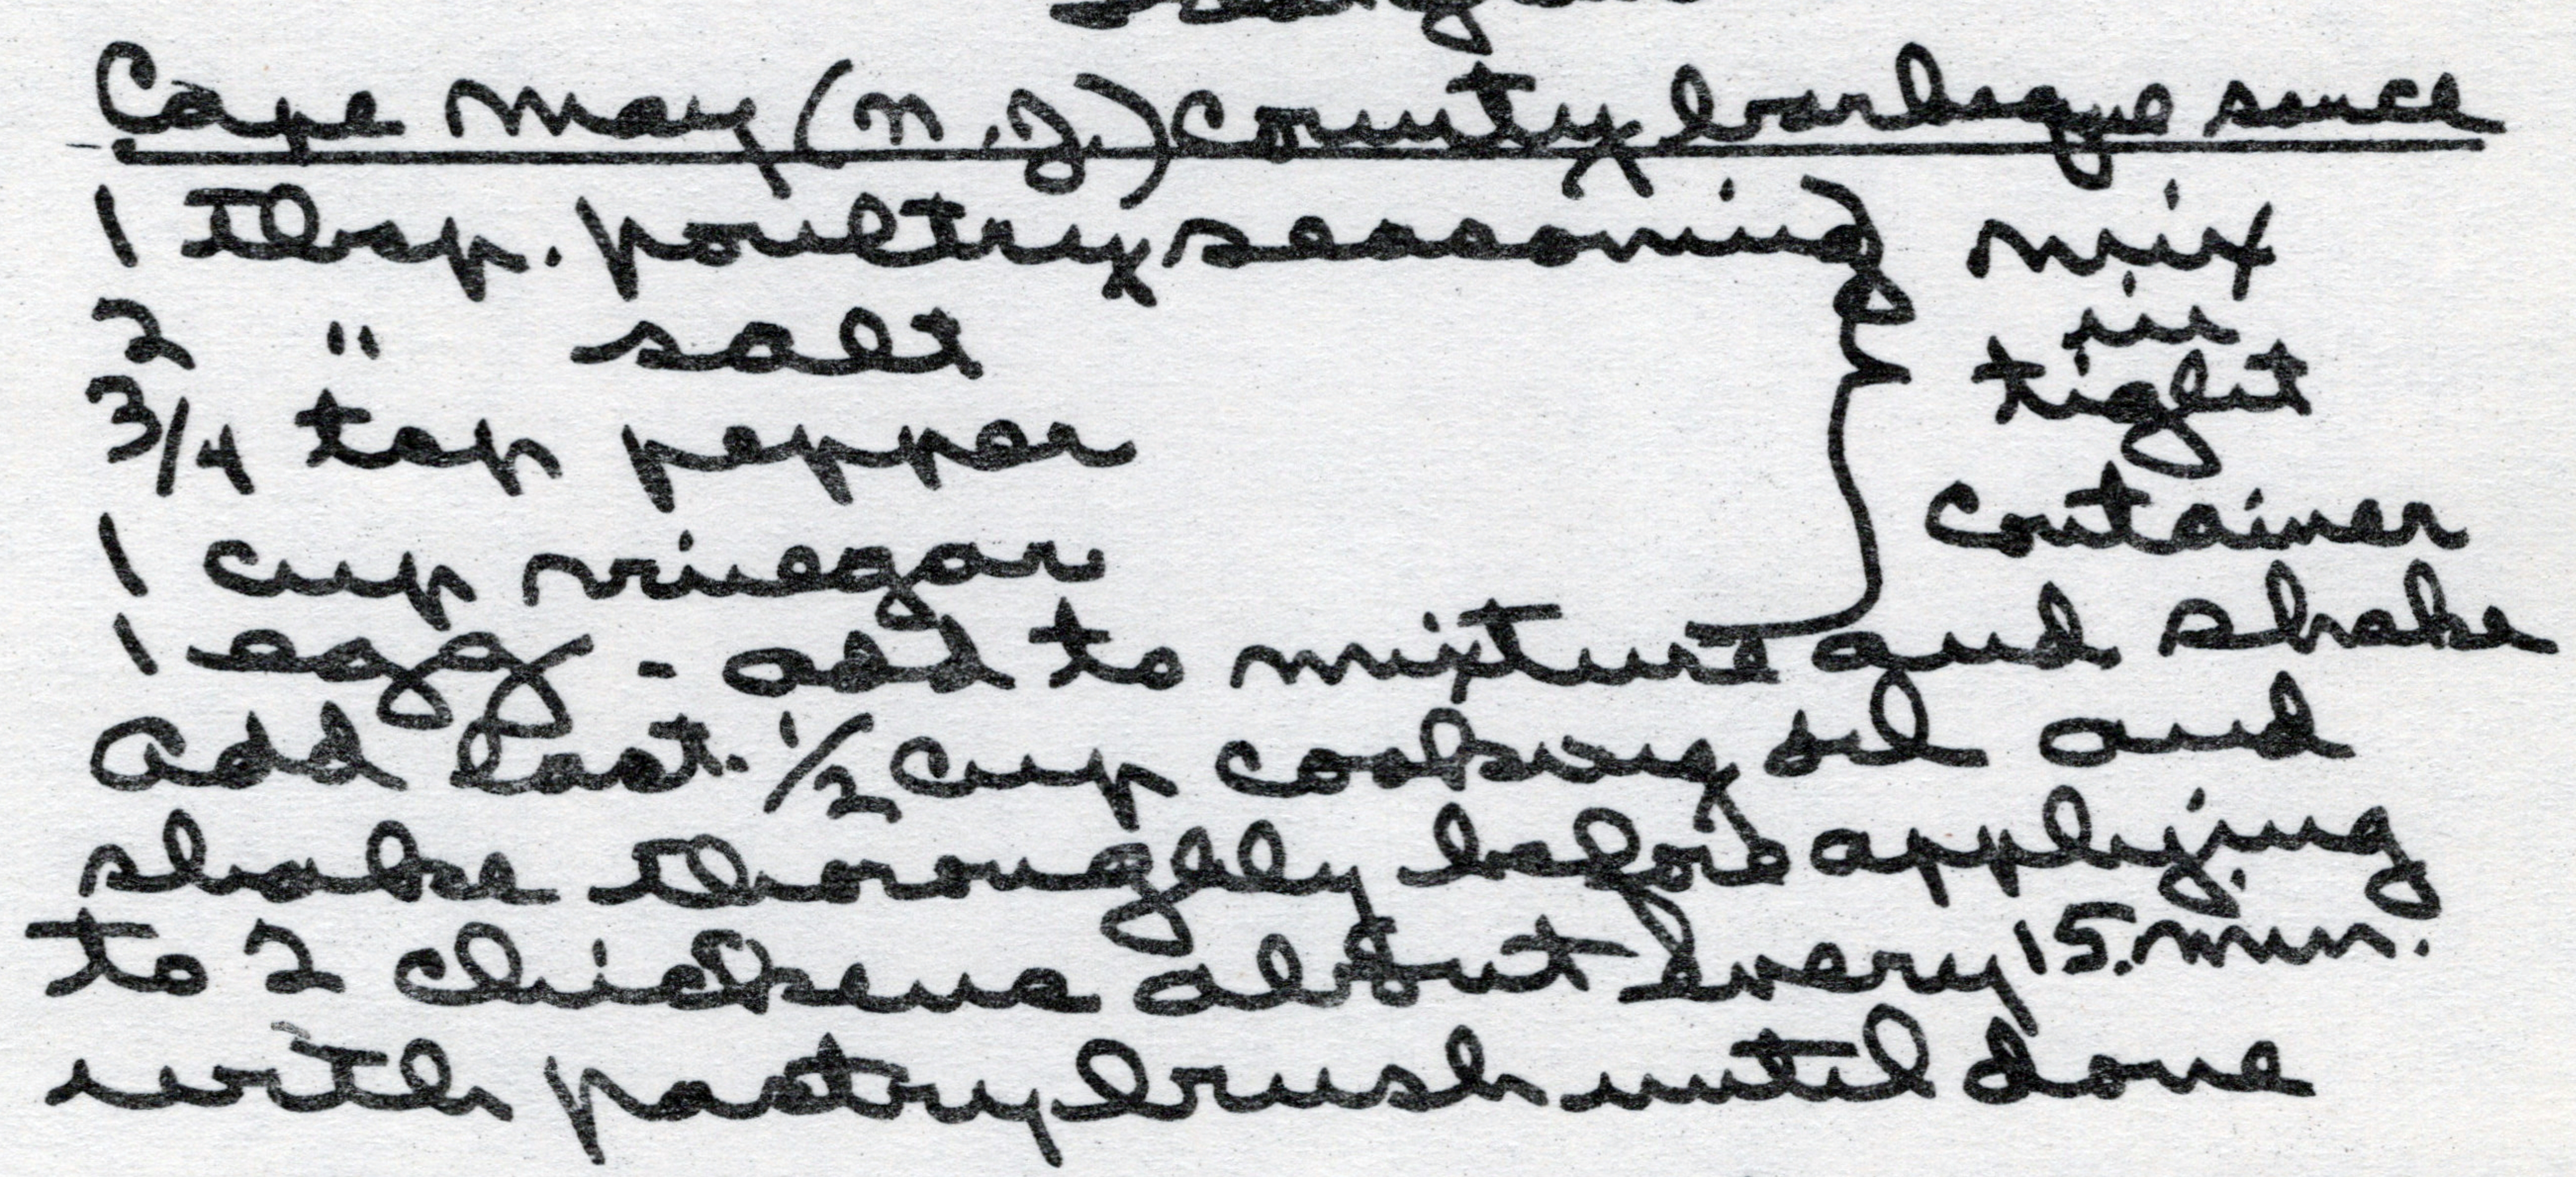 Cape May (N.J.) County barbeque sauce
1 tbsp. poultry seasoning
2 " salt
3/4 tsp pepper
1 cup vinegar
mix
in
tight
container
1 egg - add to mixture and shake
Add last 1/2 cup cooking oil and
shake thoroughly before applying
to 2 chickens about every 15 min.
with pastry brush until done